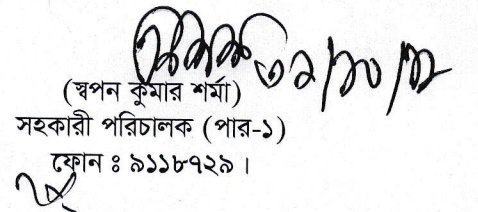 (স্বপন কুমার শর্মা)
সহকারী পরিচালক (পার-১)
ফোন : ৯১১৮৭২৯।